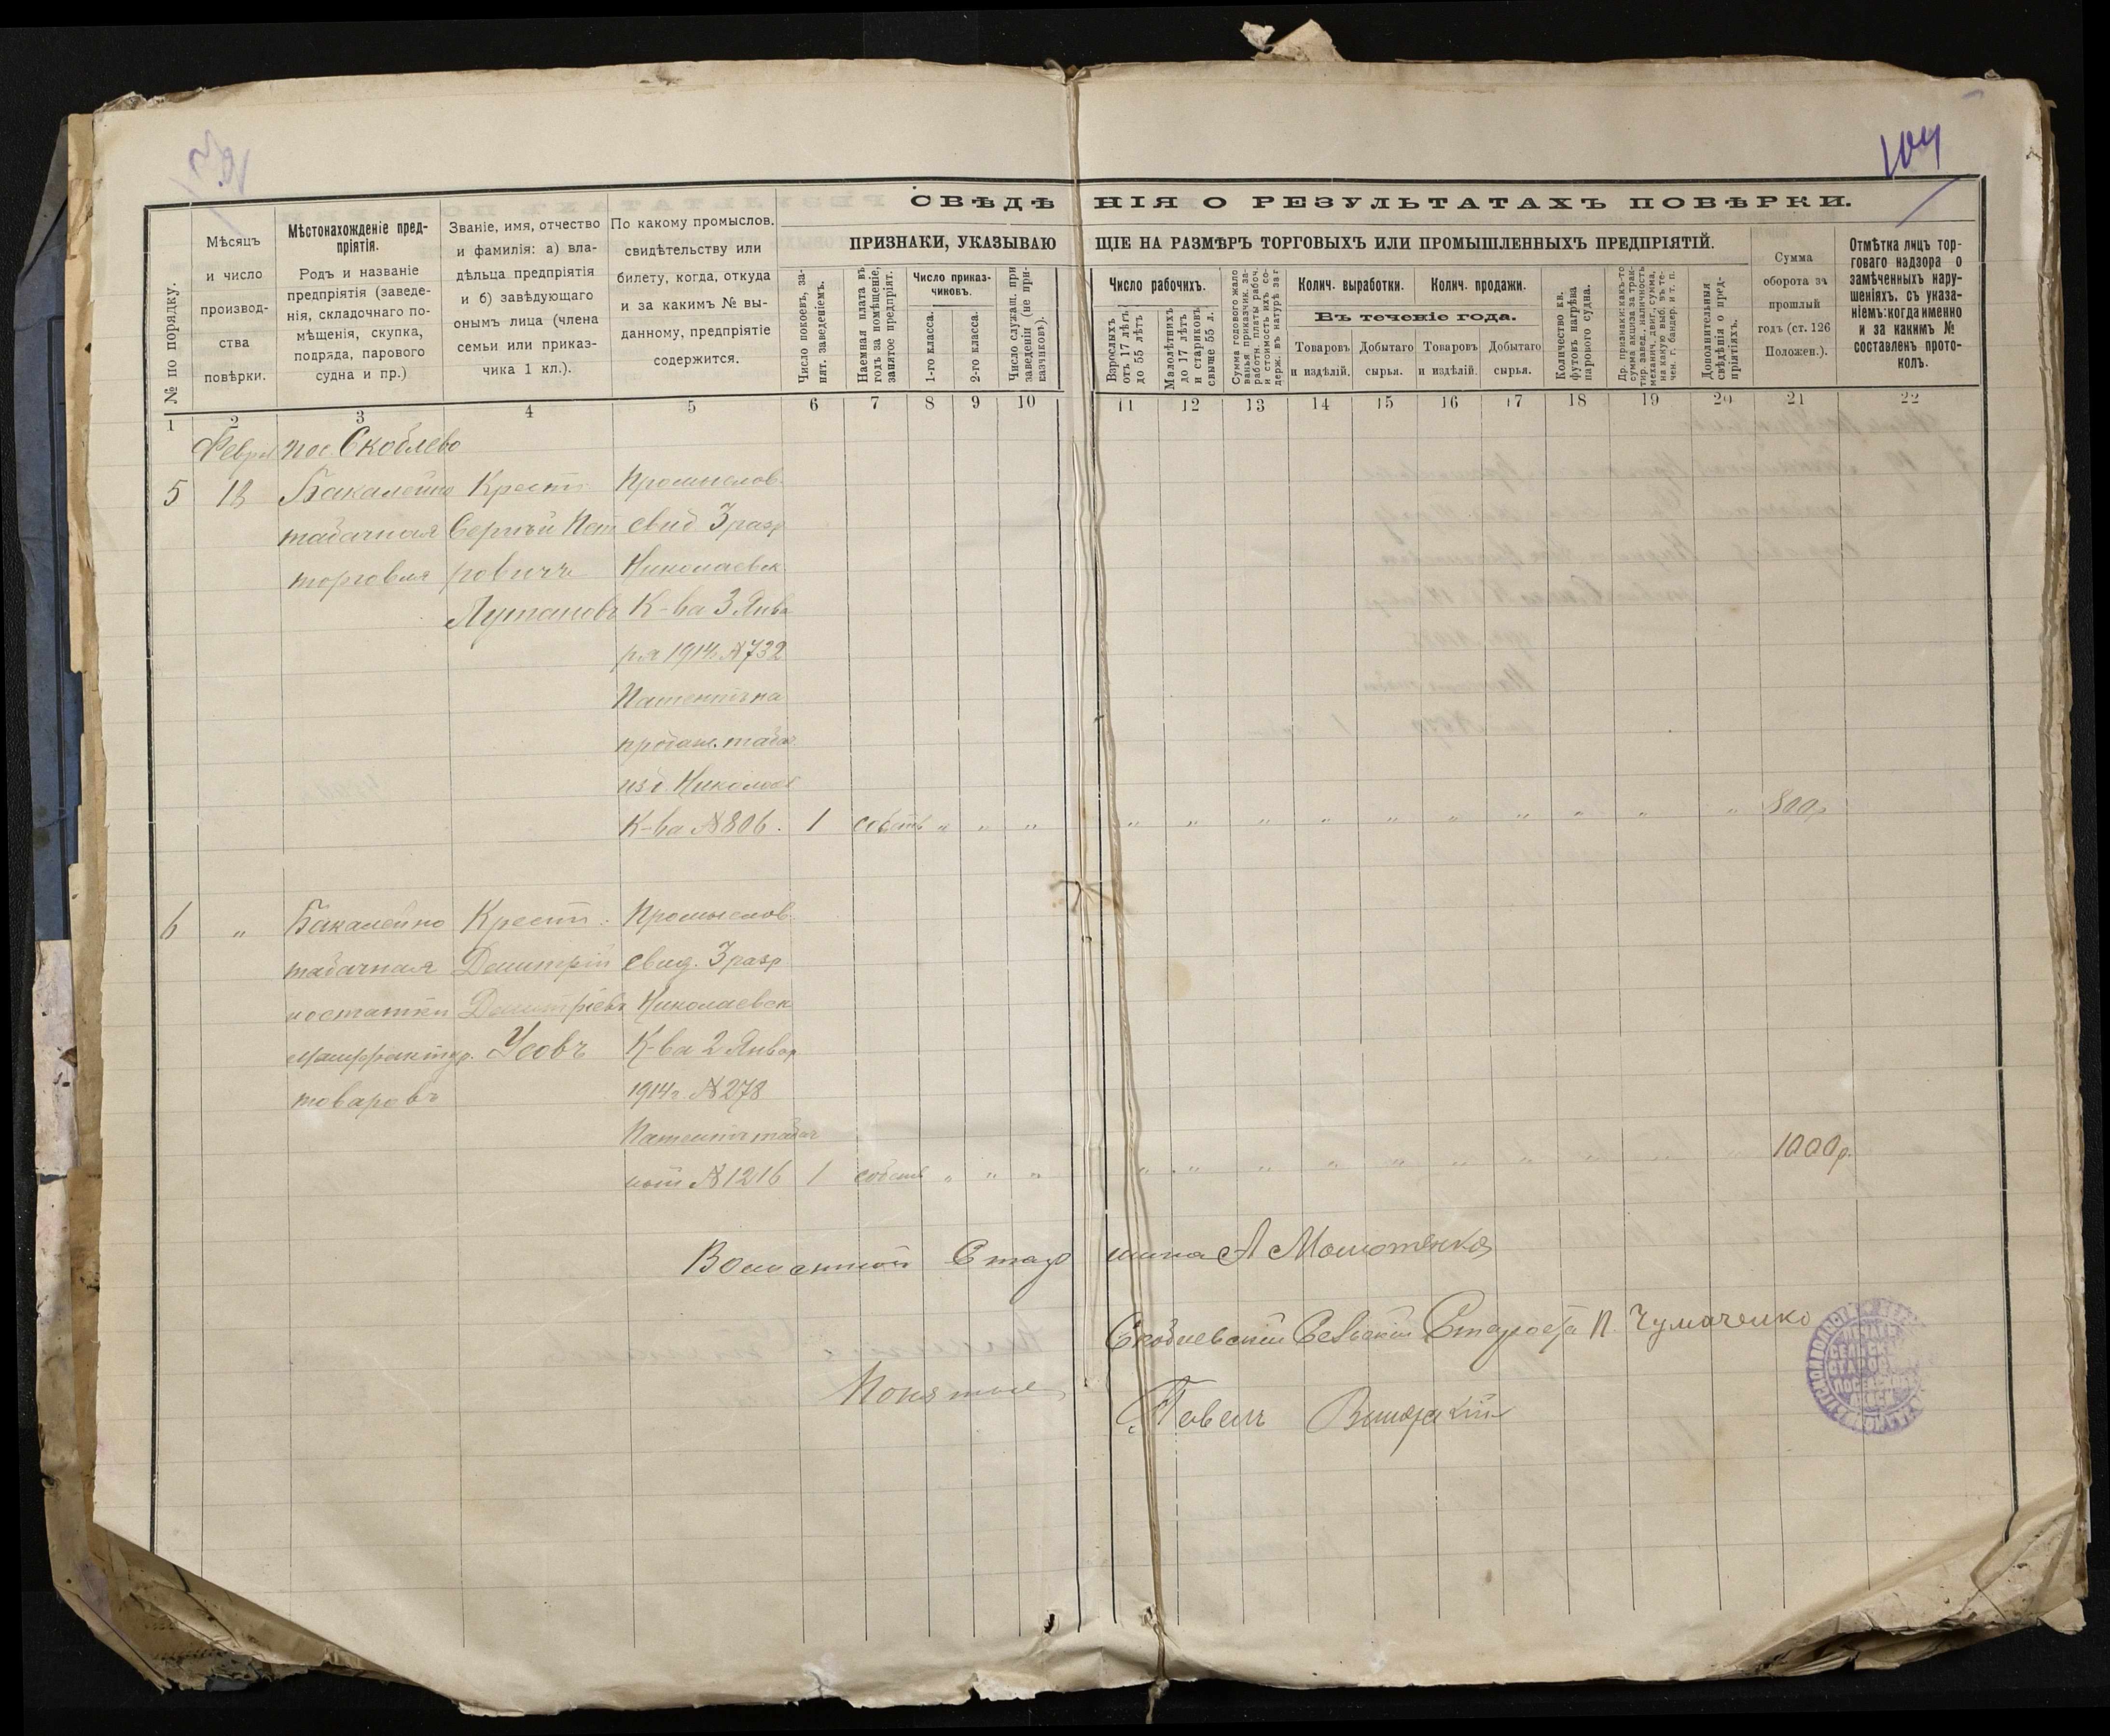 104
СВѢДѢНІЯ О РЕЗУЛЬТАТАХЪ ПОВѢРКИ.
ПРИЗНАКИ, УКАЗЫВАЮЩІЕ НА РАЗМѢРЪ ТОРГОВЫХЪ ИЛИ ПРОМЫШЛЕННЫХЪ ПРЕДПРІЯТІЙ.
№ по порядку.
Мѣсяцъ
и число
производ-
ства
повѣрки.
Мѣстонахожденіе пред-
пріятія.
Родъ и названіе
предпріятія (заведе-
нія, складочнаго по-
мѣщенія, скупка,
подряда, парового
судна и пр.)
Званіе, имя, отчество
и фамилія: а) вла-
дѣльца предпріятія
и б) завѣдующаго
онымъ лица (члена
семьи или приказ-
чика 1 кл.).
По какому промыслов.
свидѣтельству или
билету, когда, откуда
и за какимъ № вы-
данному, предпріятіе
содержится.
Число покоевъ, за-
нят. заведеніемъ.
Наемная плата въ
годъ за помѣщеніе,
занятое предпріят.
Число приказ-
чиковъ.
1-го класса.
2-го класса.
Число служащ. при
заведеніи (не при-
казчиковъ).
Число рабочихъ.
Взрослыхъ
отъ 17 лѣтъ
до 55 лѣтъ
Малолѣтнихъ
до 17 лѣтъ
и стариковъ
свыше 55 л.
Сумма годового жало
ванья приказчик. за-
работн. платы рабоч.
и стоимость ихъ со-
держ. въ натурѣ за г
Колич. выработки.
Колич. продажи.
Въ теченіе года.
Товаровъ
и издѣлій.
Добытаго
сырья.
Товаровъ
и издѣлій.
Добытаго
сырья.
Количество кв.
футовъ нагрѣва
парового судна.
Др. признаки: какъ-то
сумма акциза за трак-
тир. завед., наличность
механич. двиг., сумма,
на какую выб. въ те-
чен. г. бандер. и т. п.
Дополнительныя
свѣдѣнія о пред-
пріятіяхъ.
Сумма
оборота за
прошлый
годъ (ст. 126
Положен.).
Отмѣтка лицъ тор-
говаго надзора о
замѣченныхъ нару-
шеніяхъ, съ указа-
ніемъ: когда именно
и за какимъ №
составленъ прото-
колъ.
1 2 3 4 5 6 7 8 9 10 11 12 13 14 15 16 17 18 19 20 21 22
Феврал пос. Скоблево
5 18 Бакалейно Крест. Промыслов.
табачная Сергѣй Пет свид 3 разр
торговля ровичъ Николаевск.
Лутановъ К-ва 3 Янва
ря 1914 г. №732
Патентъ на
продаж. табач.
изъ Николаев
К-ва №806. 1 собств „ „ „ „ „ „ „ „ „ „ „ „ „ 800р
6 „ Бакалейно Крест. Промыслов.
табачная Дмитрій свид. 3 разр
и остатки Дмитріевъ Николаевск
мануфактур. Усовъ К-ва 2 Январ
товаровъ 1914 г. №278
Патентъ табач
ный №1216 1 собств „ „ „ „ „ „ „ „ „ „ „ „ „ 1000р.
Волостной Старшина А
Скоблевскій Сельскій Староста П. Чумаченко
Понятые
Павелъ